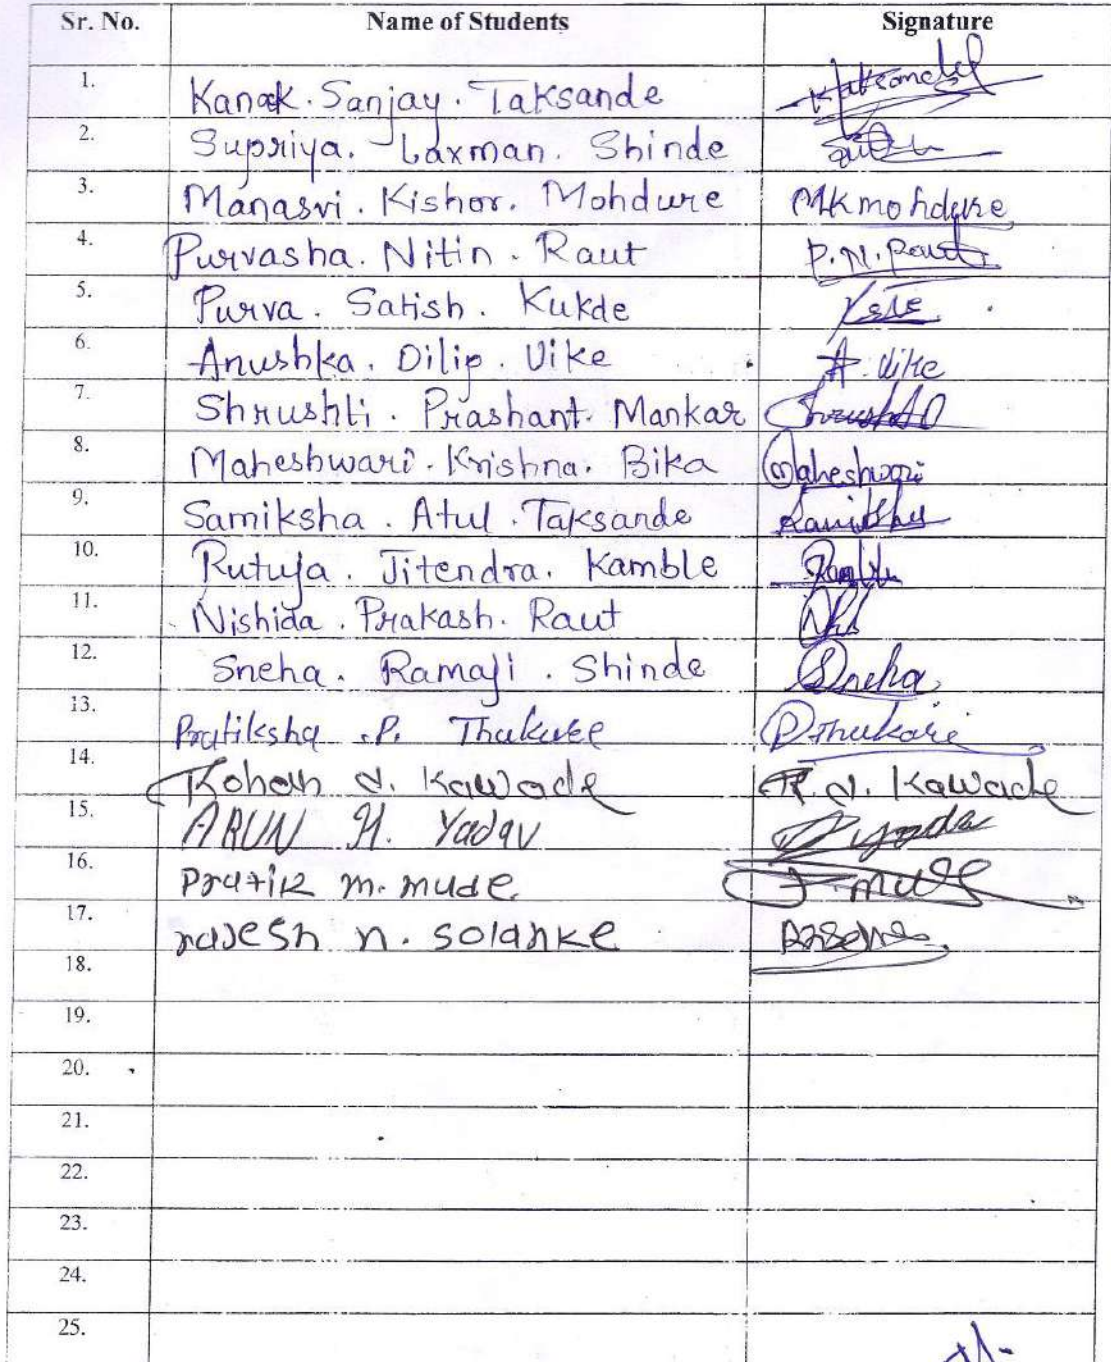 Sr. No. Name of Students Signature
1. Kanak. Sanjay. Taksande
2. Supriya. Laxman. Shinde
3. Manasvi. Kishor. Mohdure MKmohdure
4. Purvasha. Nitin. Raut P.N.Raut
5. Purva. Satish. Kukde
6. Anushka. Dilip. Uike A. Uike
7. Shrushti. Prashant. Mankar
8. Maheshwari. Krishna. Bika Maheshwari
9. Samiksha. Atul. Taksande
10. Rutuja. Jitendra. Kamble
11. Nishida. Prakash. Raut
12. Sneha. Ramaji. Shinde Sneha
13. Pratiksha .P. PThukare
14. Rohan d. Kawade R. d. Kawade
15. ARUN H. Yadav
16. Pratik m. mude.
17. rajesh n. solanke
18.
19.
20.
21.
22.
23.
24.
25.